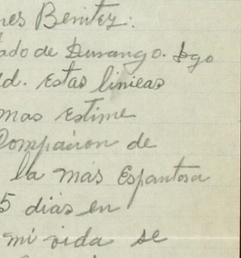 nes Benitez:
ado de Durango. Dgo
d. estas linieas
mas estime
Compañron de
la mas Espantosa
5 dias en
mi vida se